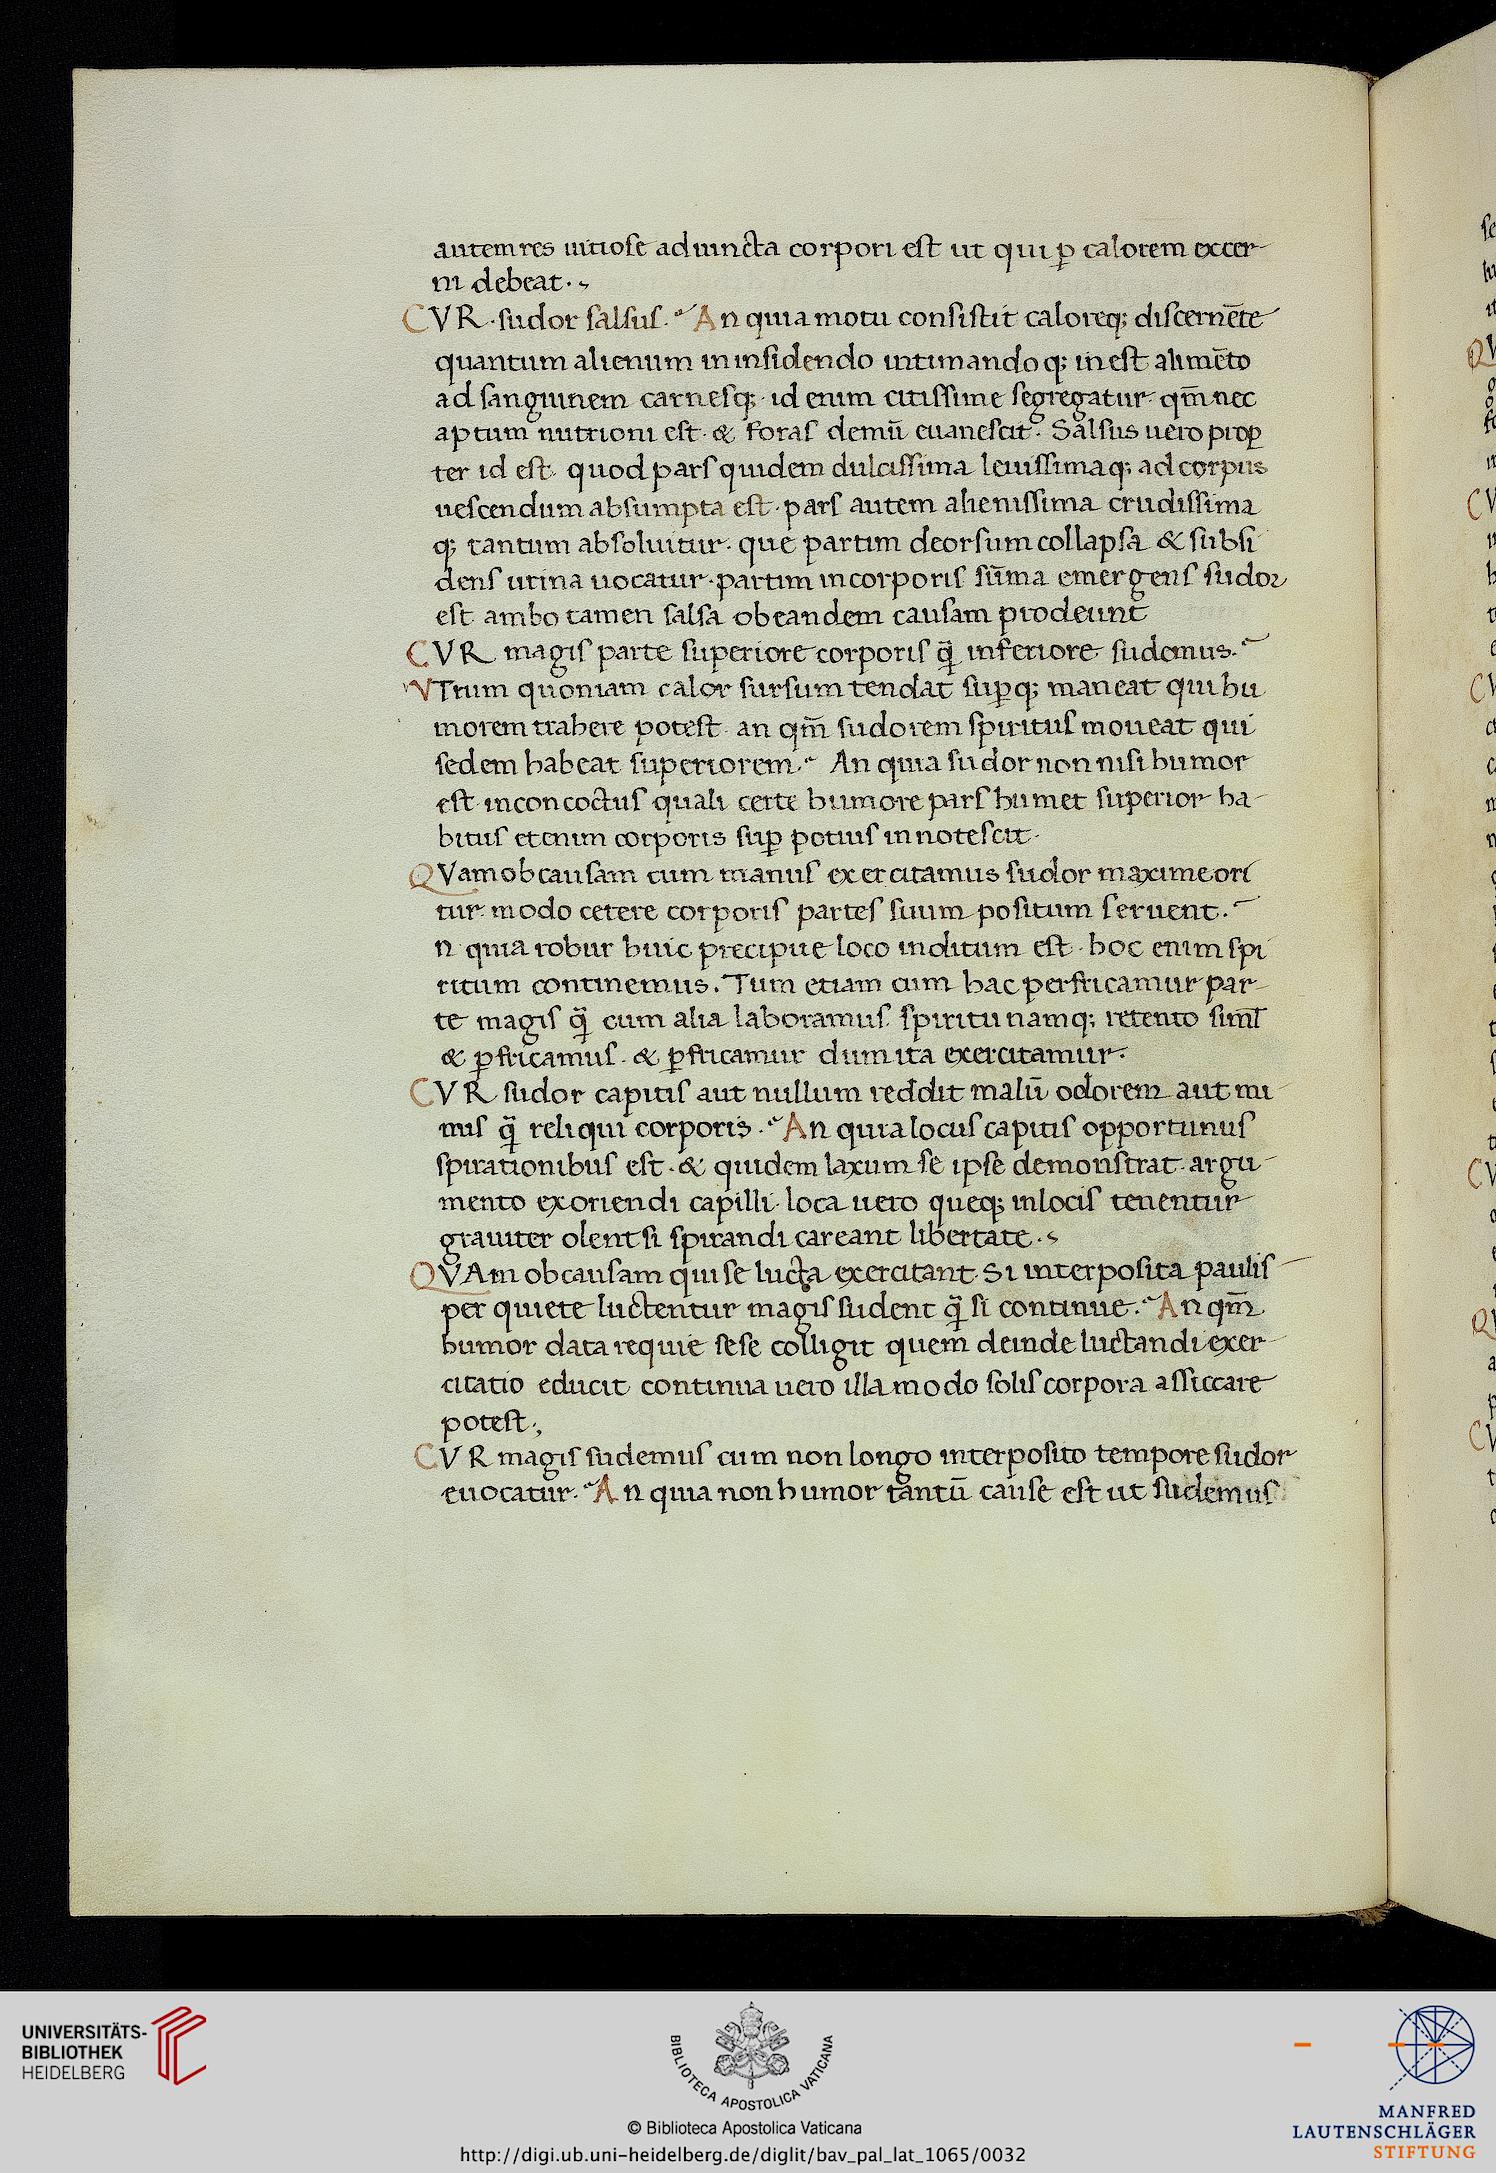 autem res uitiose aduincta corpori est ut qui ꝑ calorem excer
ni debeat.
CVR sudor salsus. An quia motu consistit caloreq; discernēte
quantum alienum in insidendo intimandoq; inest alimēto
ad sanguinem carnesq; id enim citissime segregatur qm̄ nec
aptum nutrioni est & foras demū euanescit. Salsus uero prop
ter id est quod pars quidem dulcissima leuissimaq; ad corpus
uescendum absumpta est. pars autem alienissima crudissima
q; tantum absoluitur. que partim deorsum collapsa & subsi
dens urina uocatur. partim in corporis sūma emergens sudor
est ambo tamen salsa ob eandem causam prodeunt
CVR magis parte superiore corporis q̄ inferiore sudemus.
VTrum quoniam calor sursum tendat suꝑq; maneat qui hu
morem trahere potest. an qm̄ sudorem spiritus moueat qui
sedem habeat superiorem. An quia sudor non nisi humor
est inconcoctus quali certe humore pars humet superior ha
bitus etenim corporis suꝑ potius innotescit.
QVam ob causam cum manus exercitamus sudor maxime ori
tur modo cetere corporis partes suum positum seruent.
n quia robur huic precipue loco inditum est. hoc enim spi
ritum continemus. Tum etiam cum hac perfricamur par
te magis q̄ cum alia laboramus. spiritu namq; retento siml̄
& ꝑfricamus. & ꝑfricamur dum ita exercitamur.
CVR sudor capitis aut nullum reddit malū odorem aut mi
nus q̄ reliqui corporis. An quia locus capitis opportunus
spirationibus est. & quidem laxum se ipse demonstrat. argu
mento exoriendi capilli. loca uero queq; in locis tenentur
grauiter olent si spirandi careant libertate.
QVAm ob causam qui se lucta exercitant. Si interposita paulis
per quiete luctentur magis sudent q̄ si continue. An qm̄
humor data requie sese colligit quem deinde luctandi exer
citatio educit continua uero illa modo solis corpora assiccare
potest.
CVR magis sudemus cum non longo interposito tempore sudor
euocatur. An quia non humor tantū cause est ut sudemus
UNIVERSITÄTS-
BIBLIOTHEK
HEIDELBERG
BIBLIOTECA APOSTOLICA VATICANA
© Biblioteca Apostolica Vaticana
http://digi.ub.uni-heidelberg.de/diglit/bav_pal_lat_1065/0032
MANFRED
LAUTENSCHLÄGER
STIFTUNG